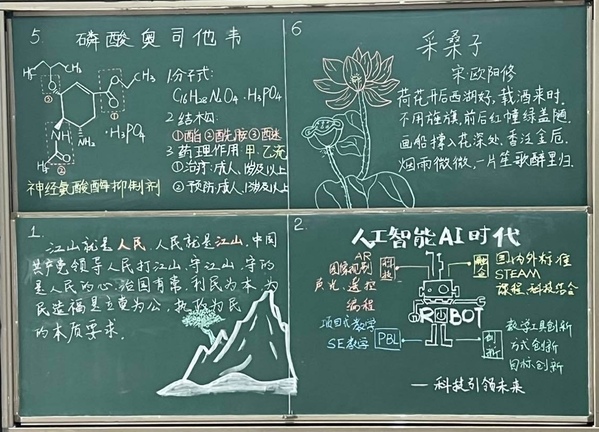 5. 磷酸奥司他韦
CH₃
③
①
NH
NH₂
②
· H₃PO₄
神经氨酸酶抑制剂
1 分子式:
C₁₆H₂₈N₂O₄ · H₃PO₄
2 结构:
①酯 ②酰胺 ③醚
3 药理作用: 甲.乙流
①治疗: 成人, 1岁及以上
②预防: 成人, 13岁及以上
6
采桑子
宋·欧阳修
荷花开后西湖好, 载酒来时.
不用旌旗, 前后红幢绿盖随.
画船撑入花深处, 香泛金卮.
烟雨微微, 一片笙歌醉里归.
1.
江山就是人民, 人民就是江山, 中国
共产党领导人民打江山、守江山, 守的
是人民的心. 治国有常, 利民为本, 为
民造福是立党为公、执政为民
的本质要求.
2.
人工智能AI时代
AR
图像识别
声光、遥控
编程
科技
融合
国内外标准
STEAM
课程、科技结合
ROBOT
项目式教学
SE教学
PBL
创新
教学工具创新
方式创新
目标创新
—科技引领未来